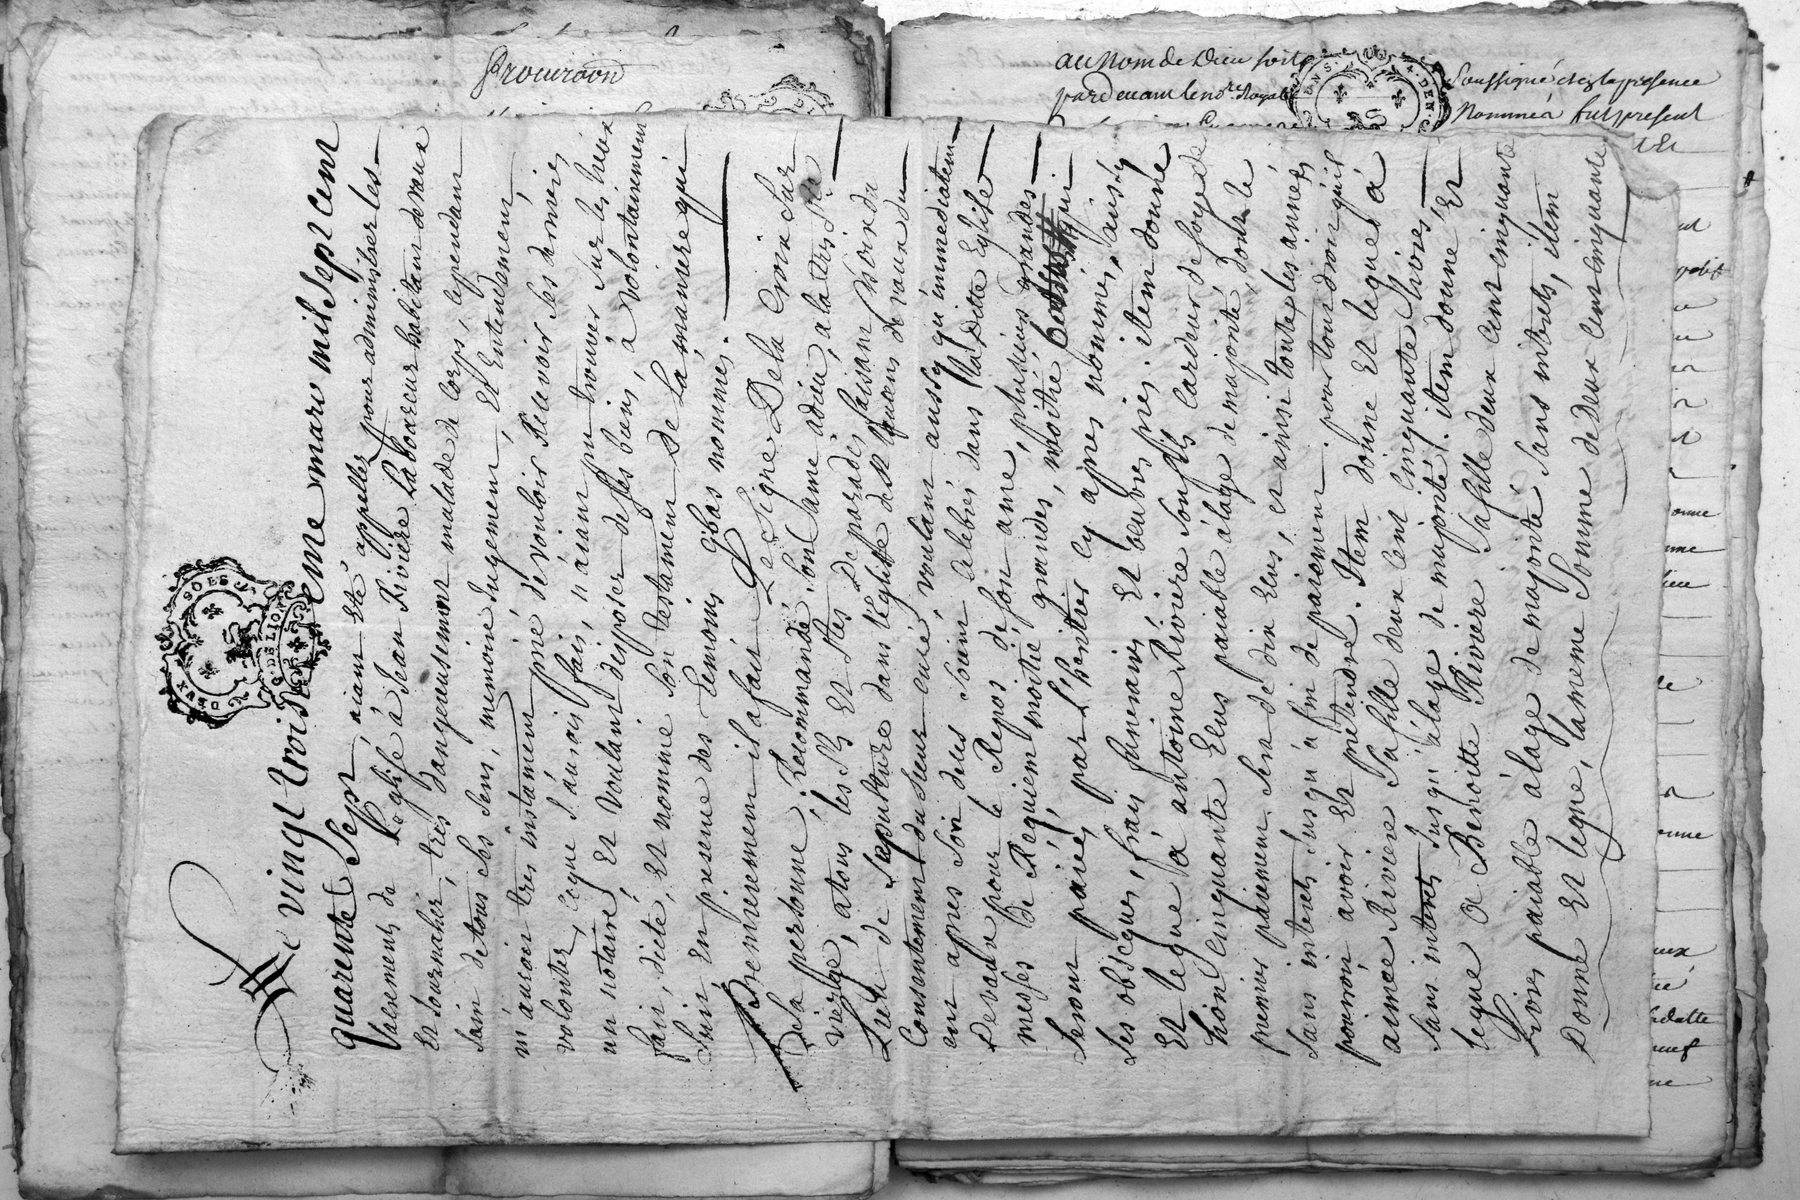 Procuraon
au Nom de Dieu soit
pardevant le nore Royal
Soussigné et ez la presence
Nommés fut present
DEUX SOES
G. DE LION
Le vingt troisieme mars mil sept cent
quarente sept, aiant eté appellez pour administrer les
sacrements de Leglise à Jean Riviere Laboureur habitant de vaux
Et Journalier, tres dangereusement malade de corps, cependant
sain de tous ses sens, memoire Jugement, Et Entendement,
m'auroit tres instament prié de vouloir Recevoir ses dernieres
volontez, ceque J'aurois fait, n'aiant pu trouver sur les lieux
un notaire, Et voulant disposer de ses biens, à volontairement
fait, dicté, Et nomme son testament de La maniere qui
suit, En presence des temoins cybas nommés.
Premierement il a fait Le Signe De la Croix sur
Sa personne, Recommandé son ame adieu, a la tres Ste
vierge, a tous les Sts Et Stes De paradis, faisant choix du
Lieu de Sepulture dans l'eglise de St de vaux du
Consentement du Sieur curé, voulant aussy qu'immediatem
ent apres Soit dells Soient Celebrés dans Sa Ditte Eglise
De vaux pour le Repos de son ame, plusieurs grandes
messes de Requiem moitié grandes, moitié qui
Seront paieés par L'heritier Cy apres nommé, ainsy
Ses obseques, frais funeraires Et oeuvres pies. item donne
Et legue à antoine Riviere Son fils Cardeur de Soye de
Lion Cinquante Ecus paiable à lage de majorité, dont le
premier paiement Sera de dix Ecus, et ainsi toute les années
Sans interets Jusqu'a fin de paiement. pour tout droit qu'il
pourroit avoir Et pretendre. Item donne Et legue à
aimee Riviere Sa fille deux cent Cinquante Livres,
Sans interets Jusqu'a lage de majorité, item donne Et
legue a Benoitte Riviere Sa fille deux cent cinquante
Livres paiable alage de majorité Sans interets, item
Donne Et legue, La meme Somme de Deux Cent cinquante